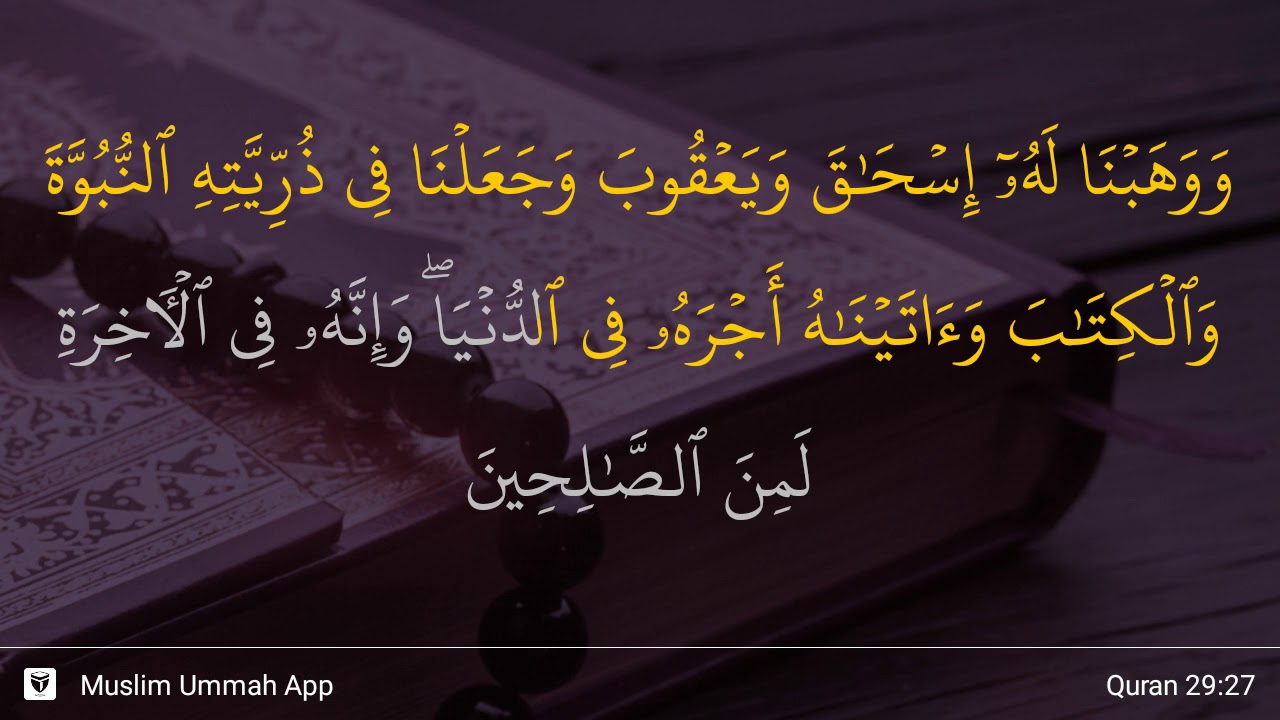 وَوَهَبْنَا لَهُۥٓ إِسْحَـٰقَ وَيَعْقُوبَ وَجَعَلْنَا فِى ذُرِّيَّتِهِ ٱلنُّبُوَّةَ
وَٱلْكِتَـٰبَ وَءَاتَيْنَـٰهُ أَجْرَهُۥ فِى ٱلدُّنْيَا ۖ وَإِنَّهُۥ فِى ٱلْـَٔاخِرَةِ
لَمِنَ ٱلصَّـٰلِحِينَ
Muslim Ummah App
Quran 29:27